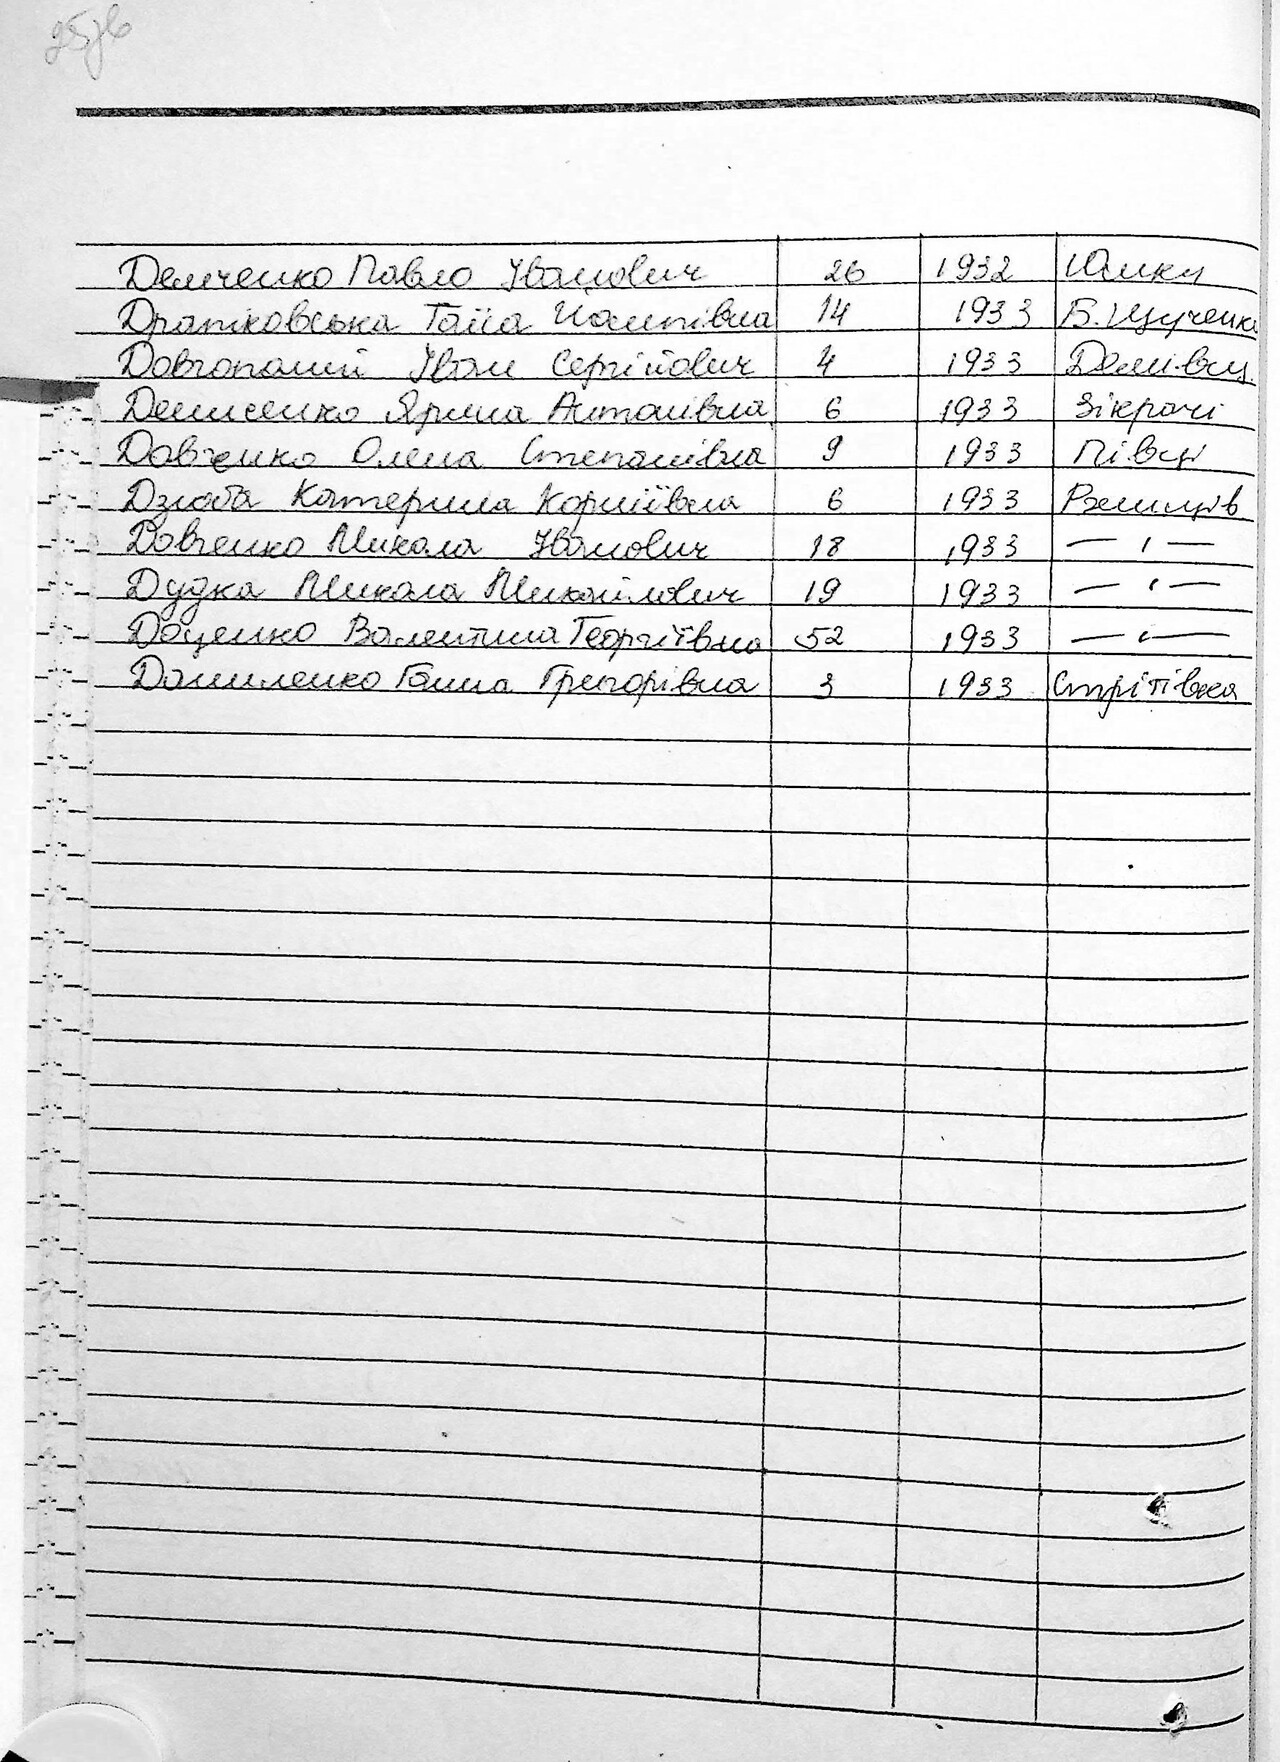 Демченко Павло Іванович 26 1932 Юшки
Драпіковська Гапа Йосипівна 14 1933 Б. Щученка
Довгопалий Іван Сергійович 4 1933 Демівщ.
Денисенко Ярина Антонівна 6 1933 Зікрачі
Довженко Олена Степанівна 9 1933 Півці
Дзюба Катерина Корніївна 6 1933 Ржищів
Довженко Микола Іванович 18 1933 — " —
Дудка Микола Михайлович 19 1933 — " —
Доценко Валентина Георгіївна 52 1933 — " —
Даниленко Ганна Григорівна 3 1933 Стрітівка